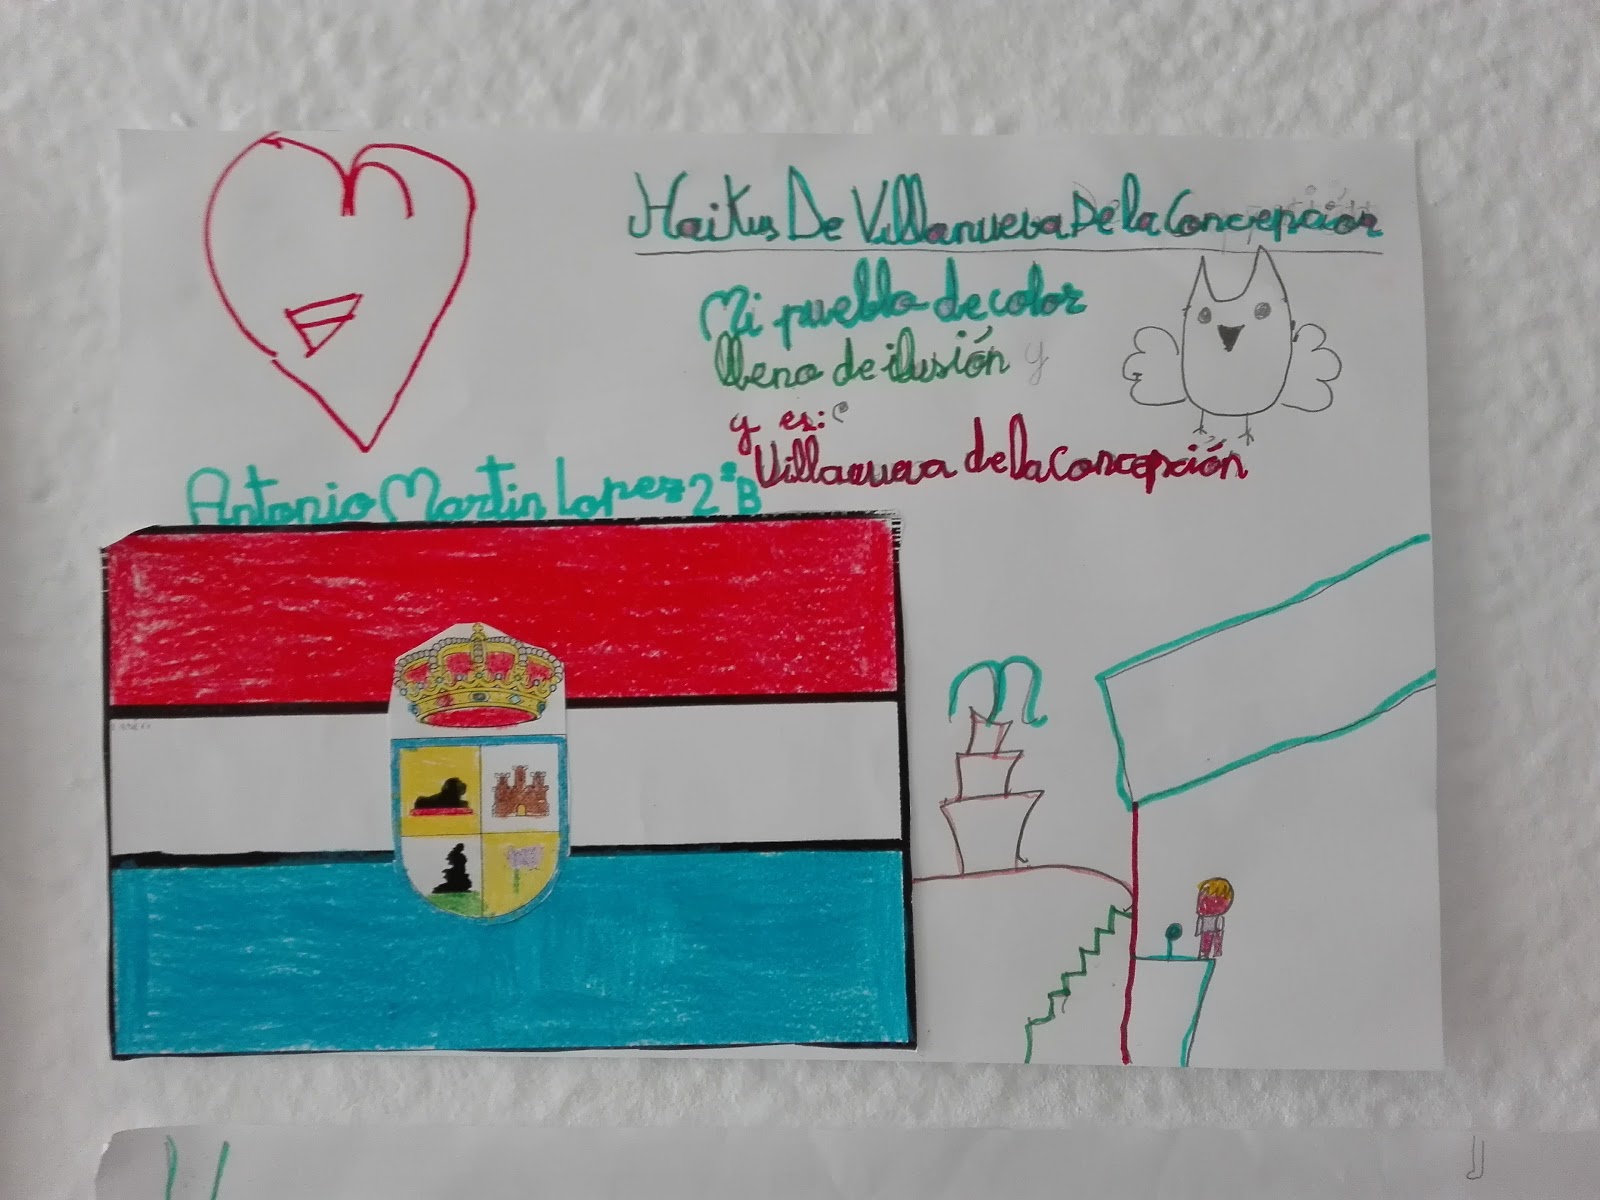 Haikus De Villanueva De la Concepción
Mi pueblo de color
lleno de ilusión y
y es:
Villanueva de la Concepción
Antonio Martin Lopez 2ºB